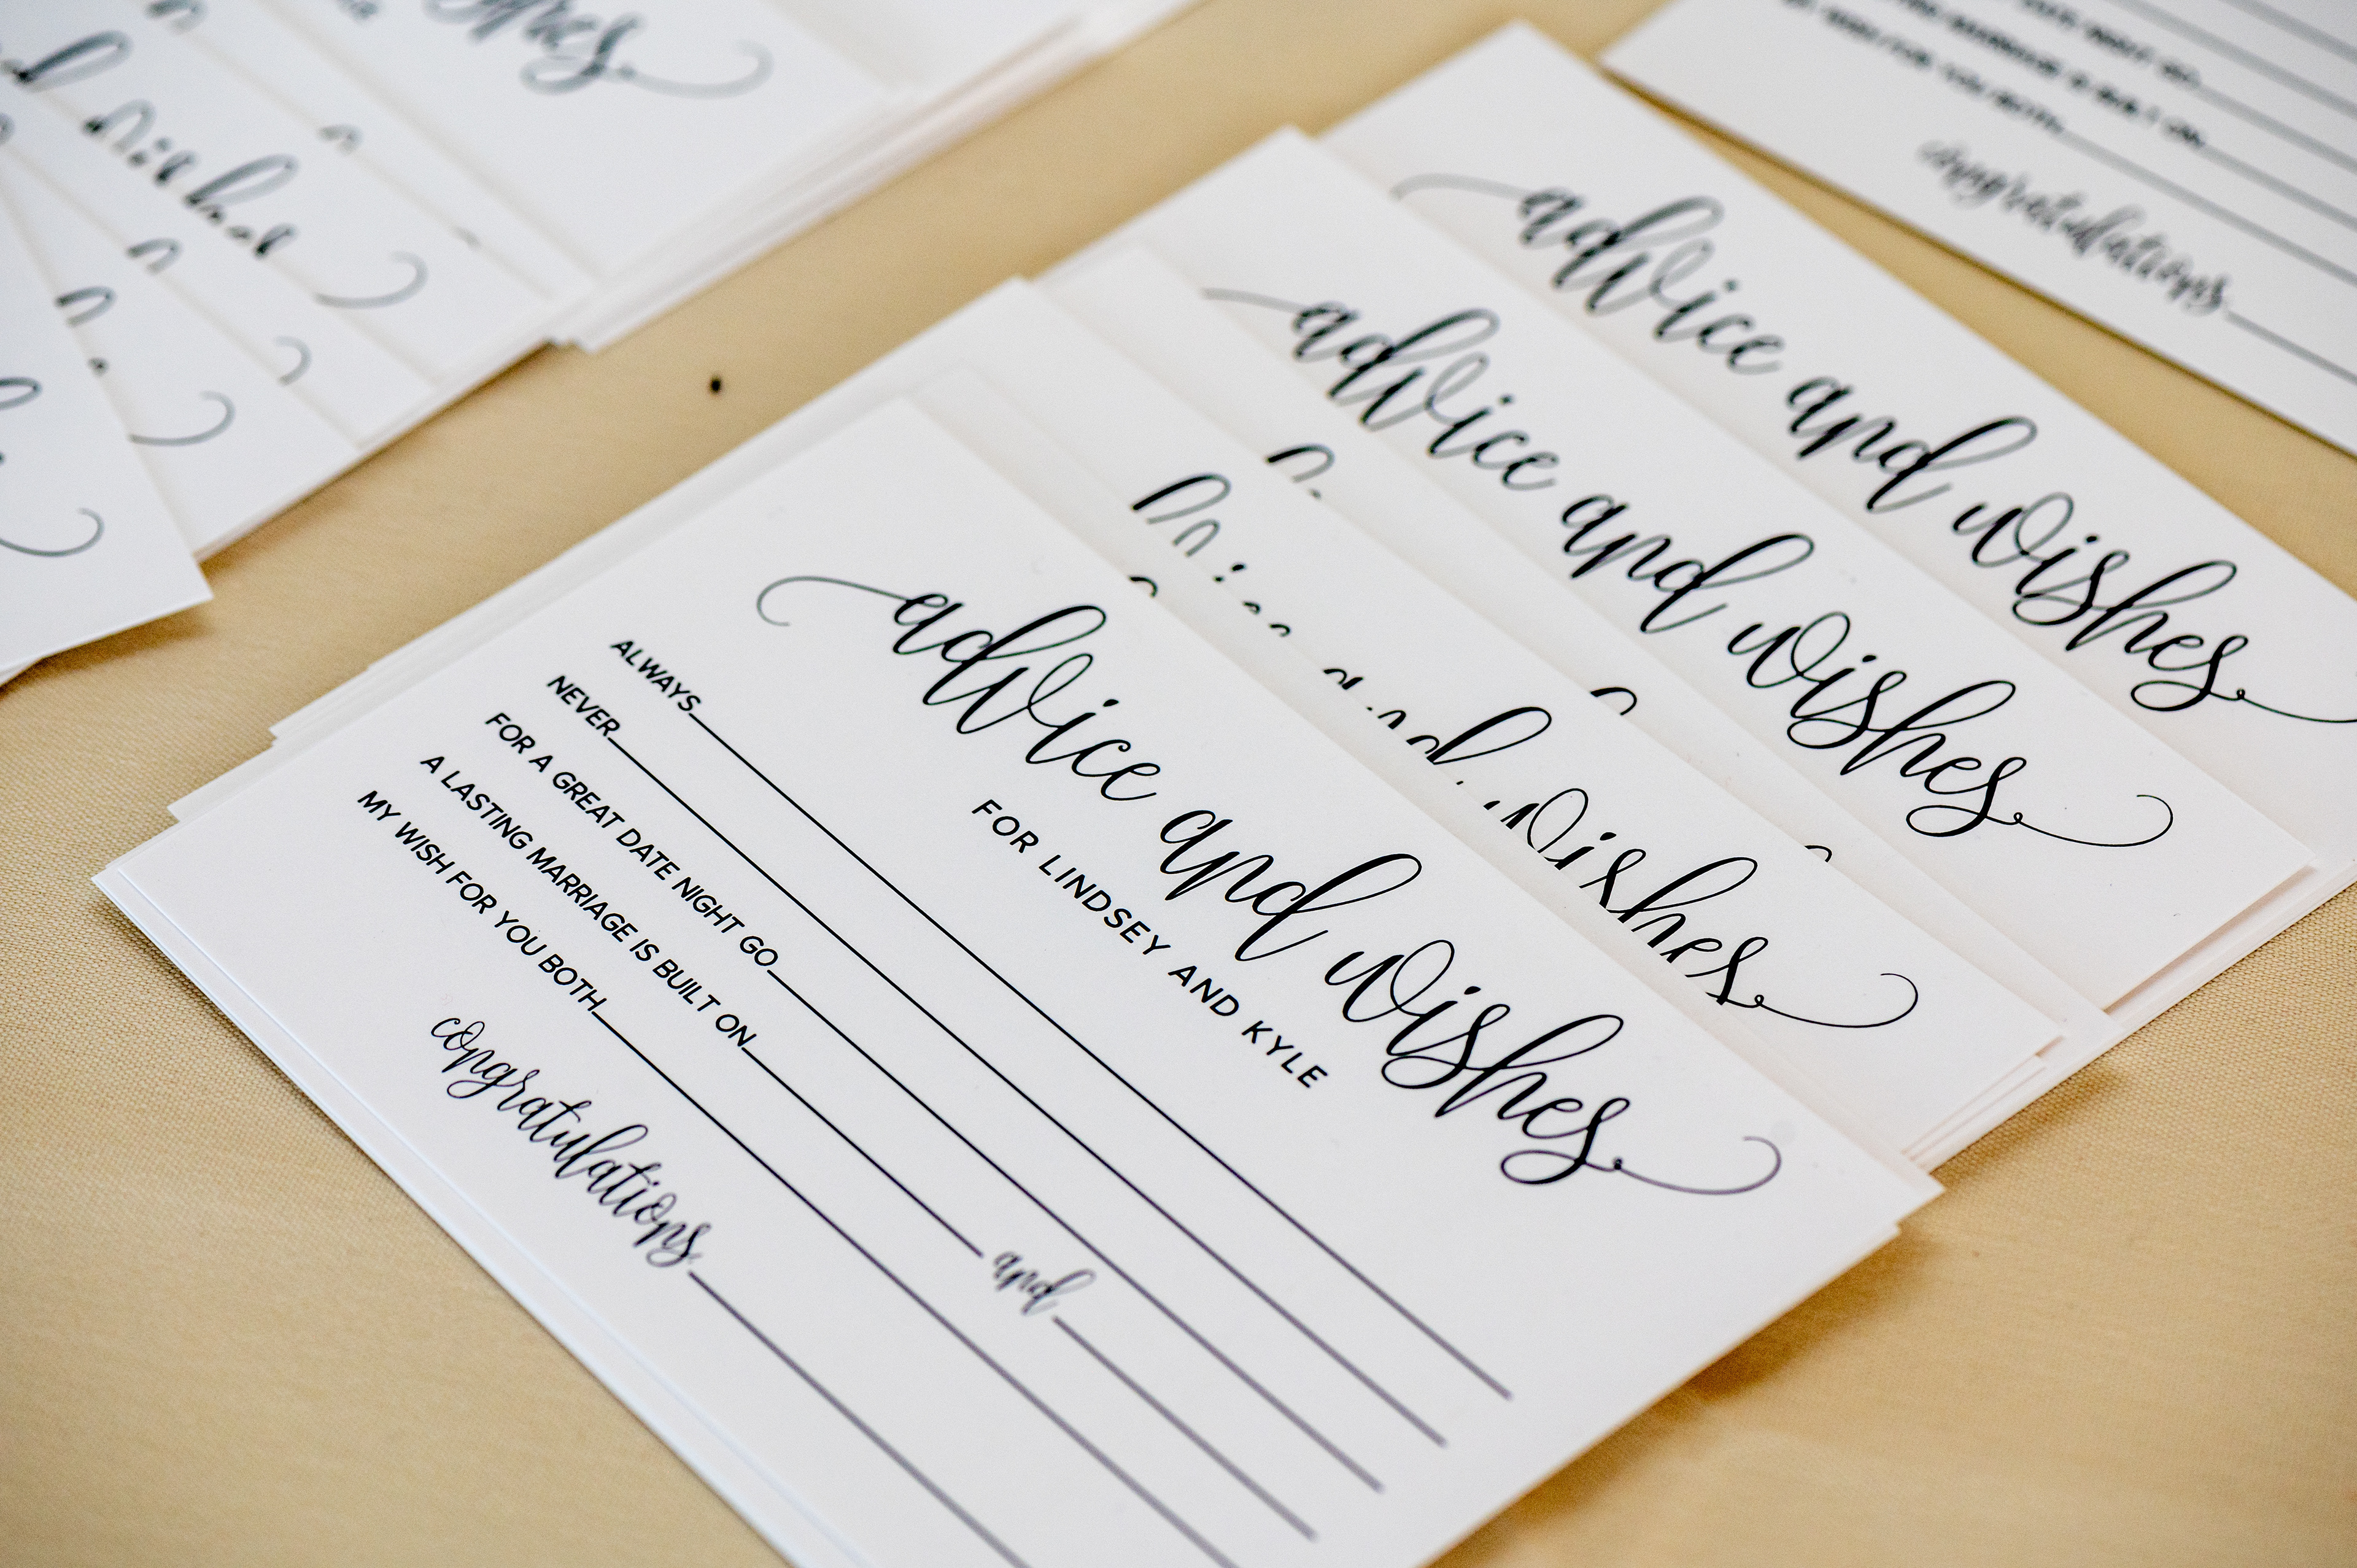 advice and wishes
FOR LINDSEY AND KYLE
ALWAYS
NEVER
FOR A GREAT DATE NIGHT GO
A LASTING MARRIAGE IS BUILT ON and
MY WISH FOR YOU BOTH
congratulations
wishes
advice and wishes
advice and wishes
congratulations